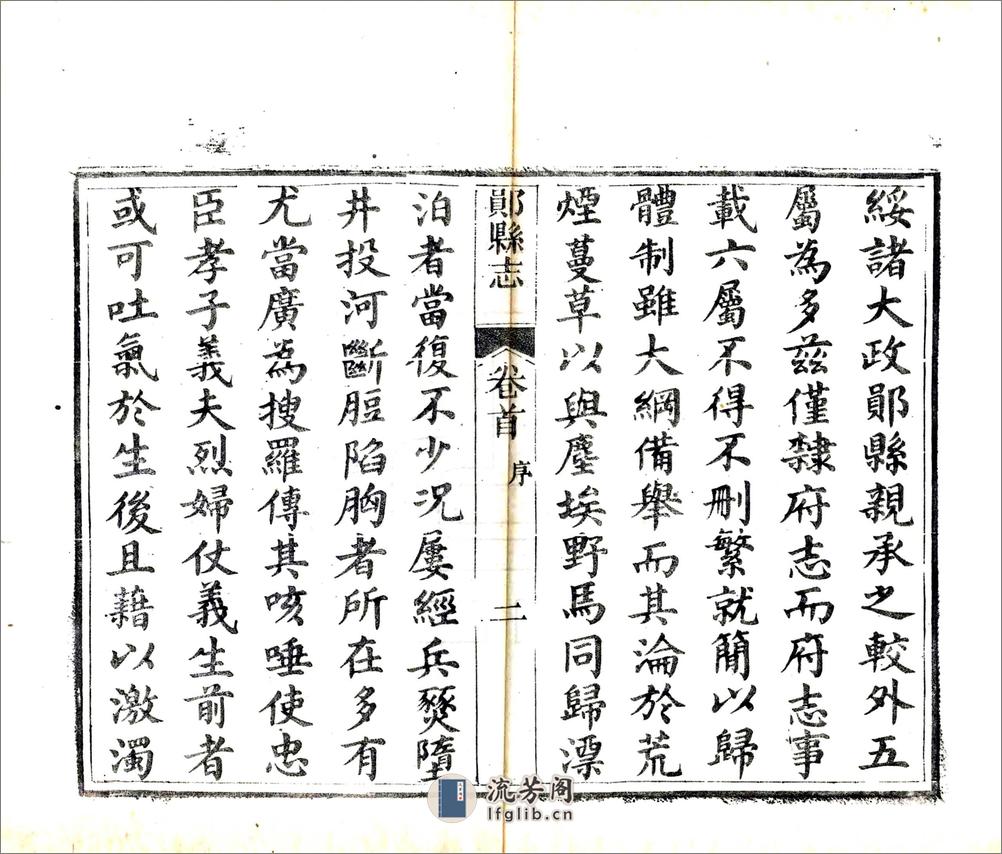 綏諸大政鄖縣親承之較外五
屬為多茲僅隸府志而府志事
載六屬不得不刪繁就簡以歸
體制雖大綱備舉而其淪於荒
煙蔓草以與塵埃野馬同歸漂
鄖縣志
卷首
序
二
泊者當復不少况屢經兵燹墮
井投河斷脰陷胸者所在多有
尤當廣為搜羅傳其咳唾使忠
臣孝子義夫烈婦仗義生前者
或可吐氣於生後且藉以激濁
流芳阁
lfglib.cn